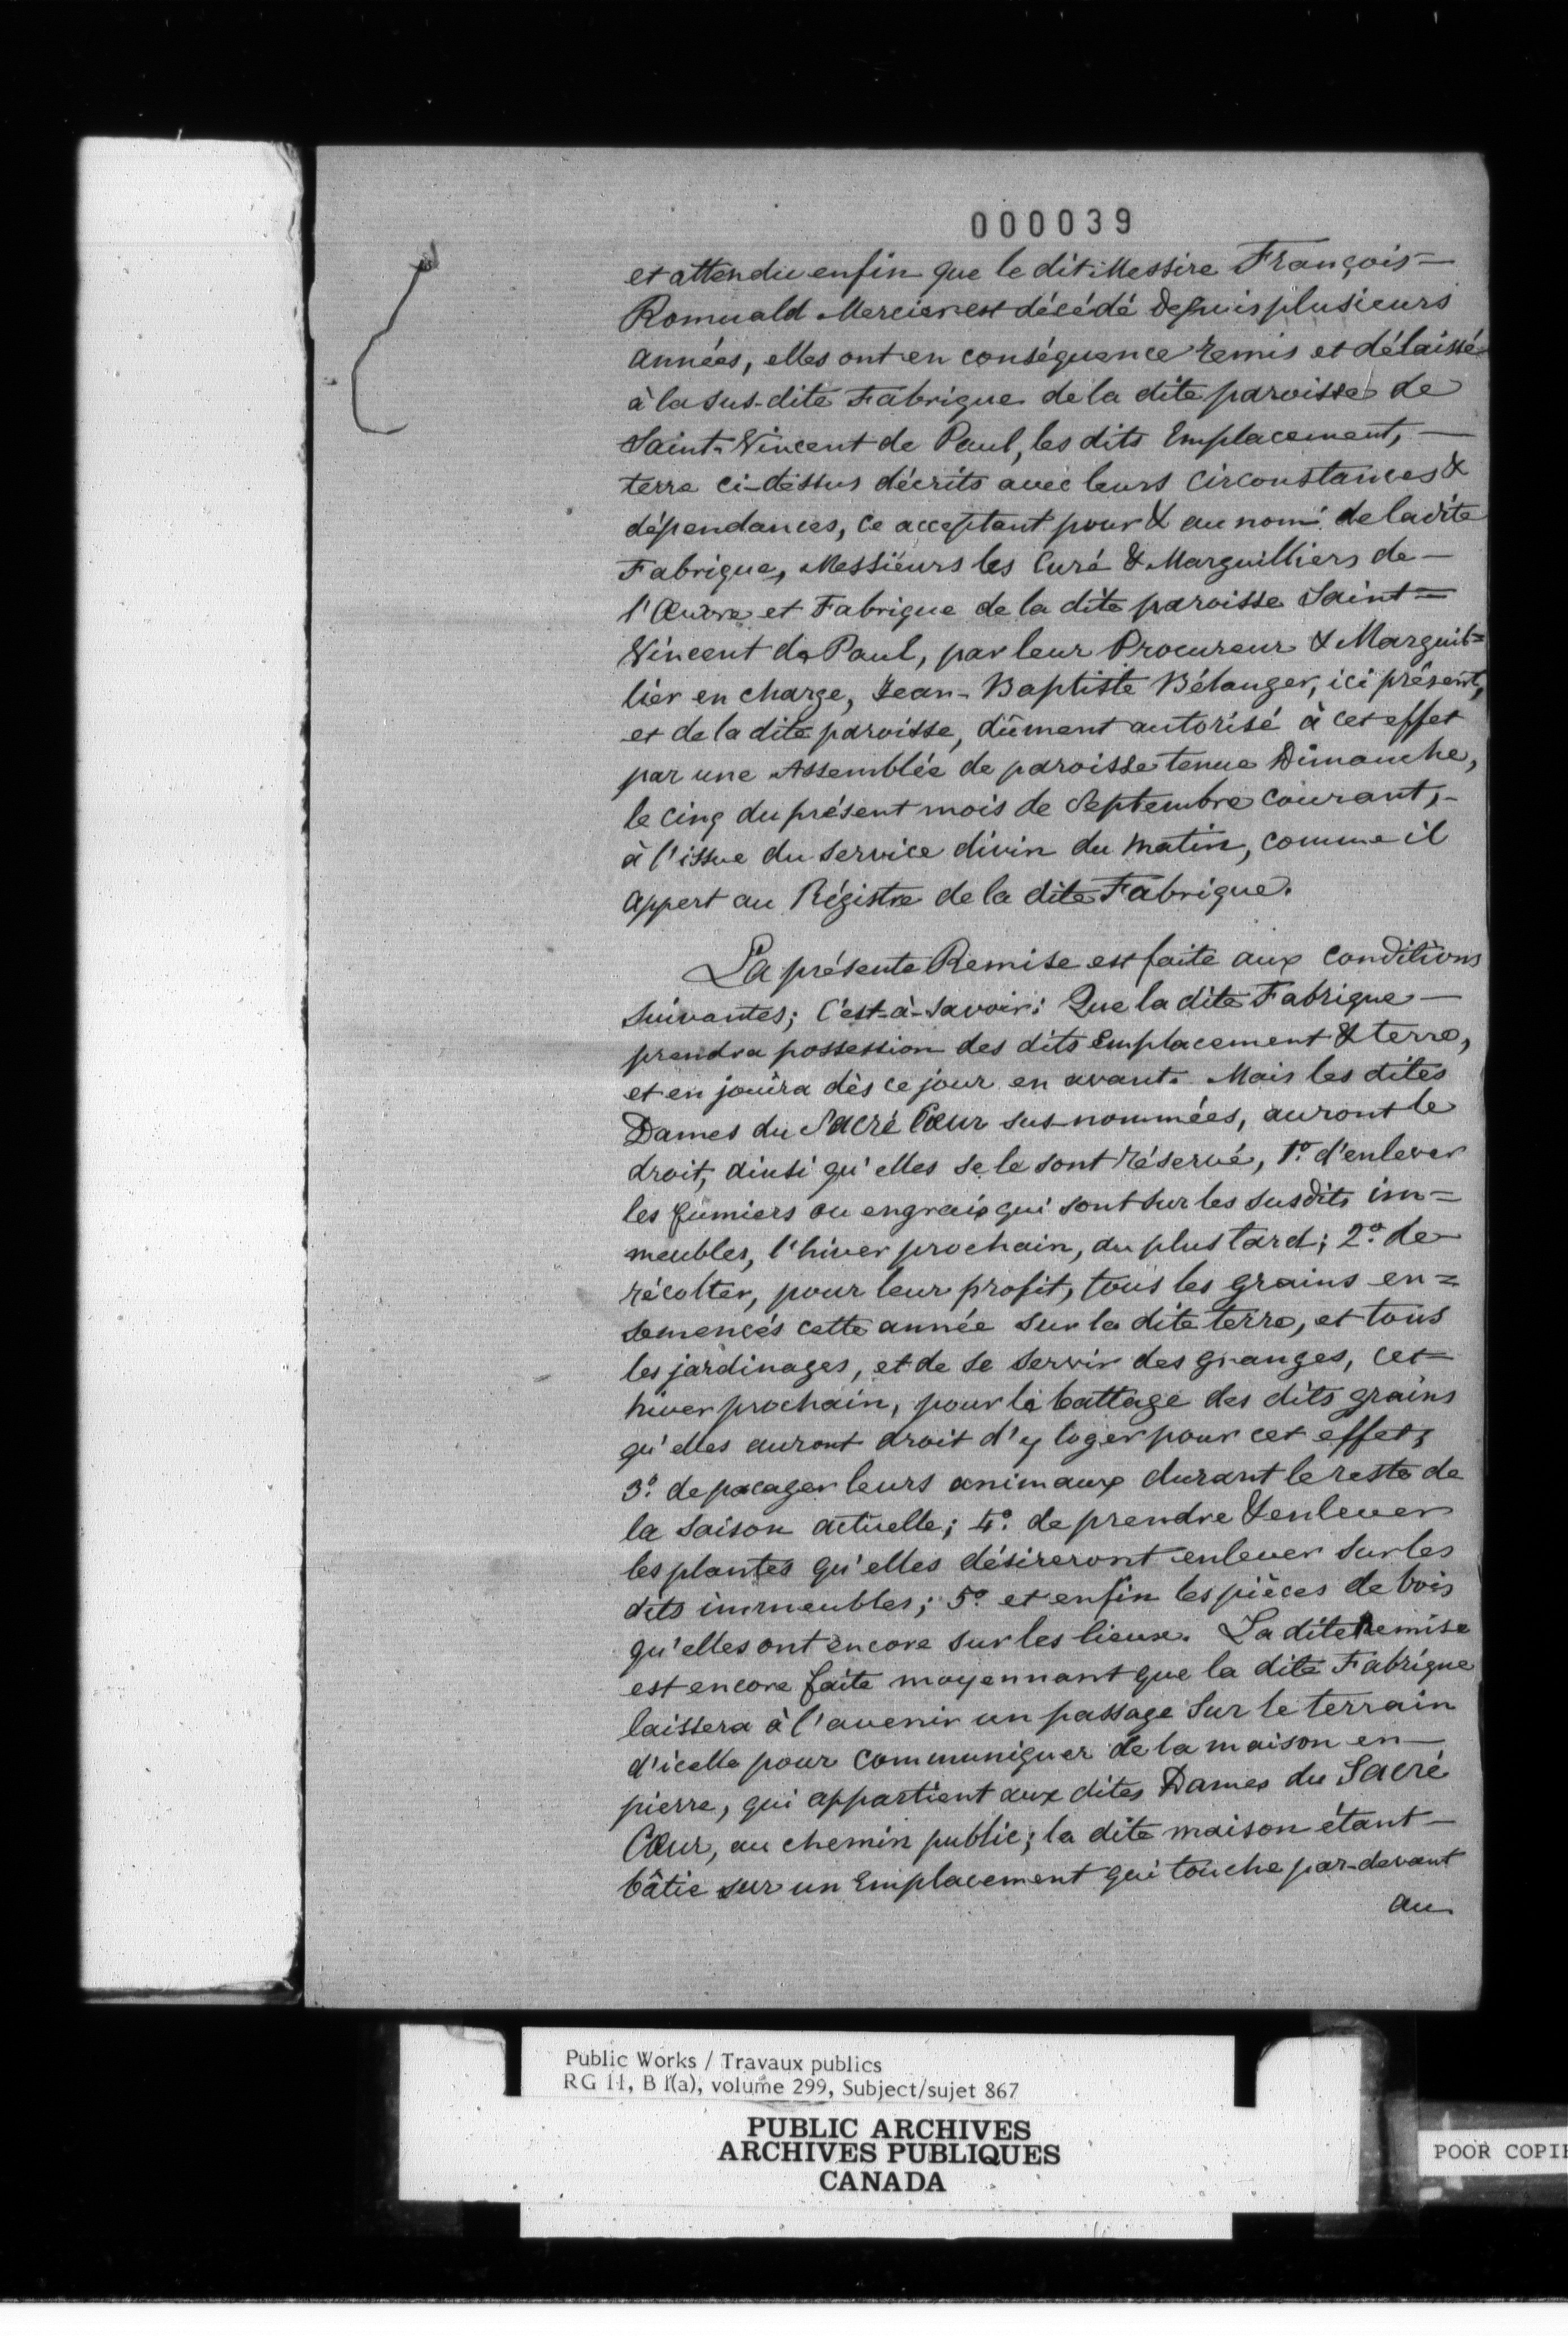 000039
et attendu enfin que le dit Messire François-
Romuald Mercier est décédé depuis plusieurs
années, elles ont en conséquence remis et délaissé
à la sus-dite Fabrique de la dite paroisse de
Saint-Vincent de Paul, les dits Emplacement, —
terre ci-dessus décrits avec leurs circonstances &
dépendances, ce acceptant pour & au nom de la dite
Fabrique, Messieurs les Curé & Marguilliers de —
l'Œuvre et Fabrique de la dite paroisse Saint=
Vincent de Paul, par leur Procureur & Marguil=
lier en charge, Jean-Baptiste Bélanger, ici présent,
et de la dite paroisse, dûment autorisé à cet effet
par une Assemblée de paroisse tenue Dimanche,
le cinq du présent mois de Septembre courant, -
à l'issue du service divin du matin, comme il
appert au Régistre de la dite Fabrique.
La présente Remise est faite aux conditions
suivantes; c'est-à-savoir: Que la dite Fabrique —
prendra possession des dits emplacement & terre,
et en jouira dès ce jour en avant. Mais les dites
Dames du Sacré Cœur sus-nommées, auront le
droit, ainsi qu'elles se le sont réservé, 1º. d'enlever
les fumiers ou engrais qui sont sur les susdits im=
meubles, l'hiver prochain, au plus tard; 2º. de
récolter, pour leur profit, tous les grains en=
semencés cette année sur la dite terre, et tous
les jardinages, et de se servir des granges, cet
hiver prochain, pour le battage des dits grains
qu'elles auront droit d'y loger pour cet effet;
3º. de pacager leurs animaux durant le reste de
la saison actuelle; 4º. de prendre & enlever
les plantes qu'elles désireront enlever sur les
dits immeubles; 5º. et enfin les pièces de bois
qu'elles ont encore sur les lieux. La dite Remise
est encore faite moyennant que la dite Fabrique
laissera à l'avenir un passage sur le terrain
d'icelle pour communiquer de la maison en —
pierre, qui appartient aux dites Dames du Sacré
Cœur, au chemin public; la dite maison étant —
bâtie sur un Emplacement qui touche par-devant
au
Public Works / Travaux publics
RG 11, B 1(a), volume 299, Subject/sujet 867
PUBLIC ARCHIVES
ARCHIVES PUBLIQUES
CANADA
POOR COPIE